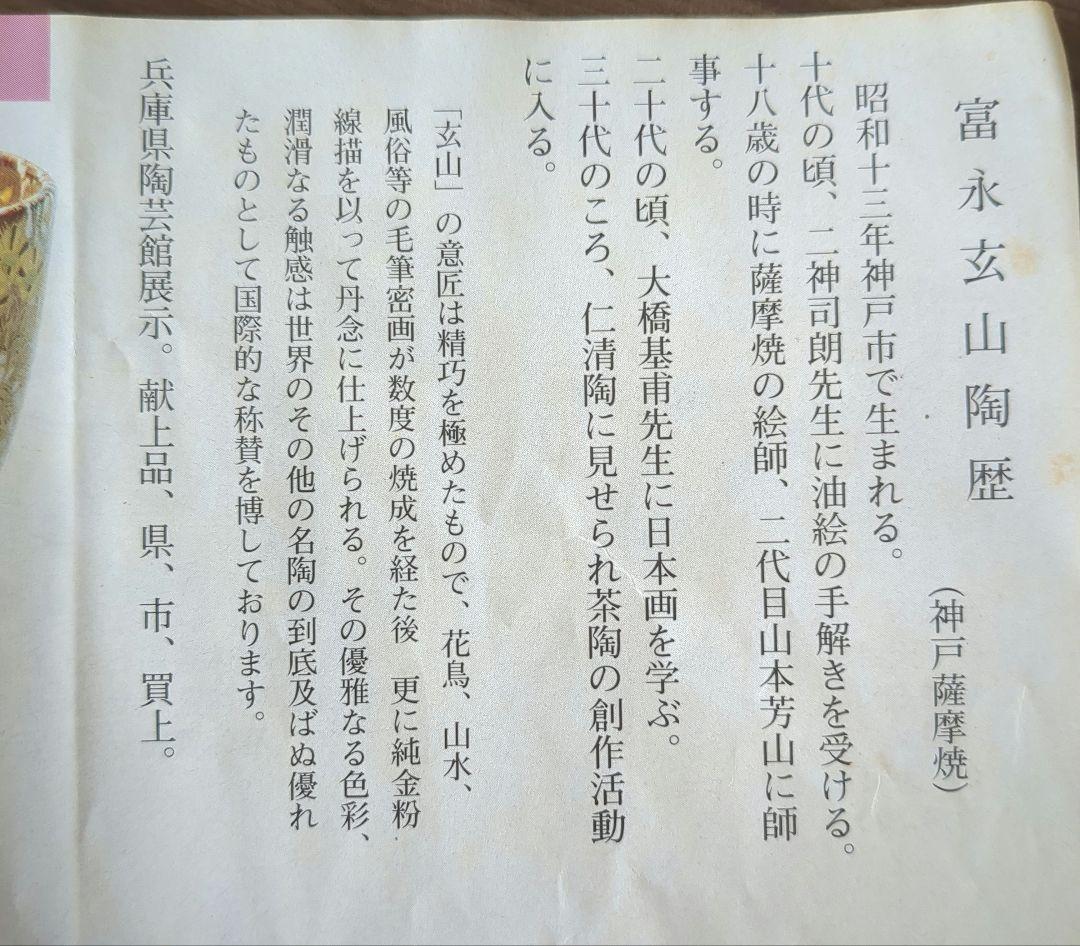 富永玄山陶歴
(神戸薩摩焼)
昭和十三年神戸市で生まれる。
十代の頃、二神司朗先生に油絵の手解きを受ける。
十八歳の時に薩摩焼の絵師、二代目山本芳山に師
事する。
二十代の頃、大橋基甫先生に日本画を学ぶ。
三十代のころ、仁清陶に見せられ茶陶の創作活動
に入る。
「玄山」の意匠は精巧を極めたもので、花鳥、山水、
風俗等の毛筆密画が数度の焼成を経た後 更に純金粉
線描を以って丹念に仕上げられる。その優雅なる色彩、
潤滑なる触感は世界のその他の名陶の到底及ばぬ優れ
たものとして国際的な称賛を博しております。
兵庫県陶芸館展示。献上品、県、市、買上。